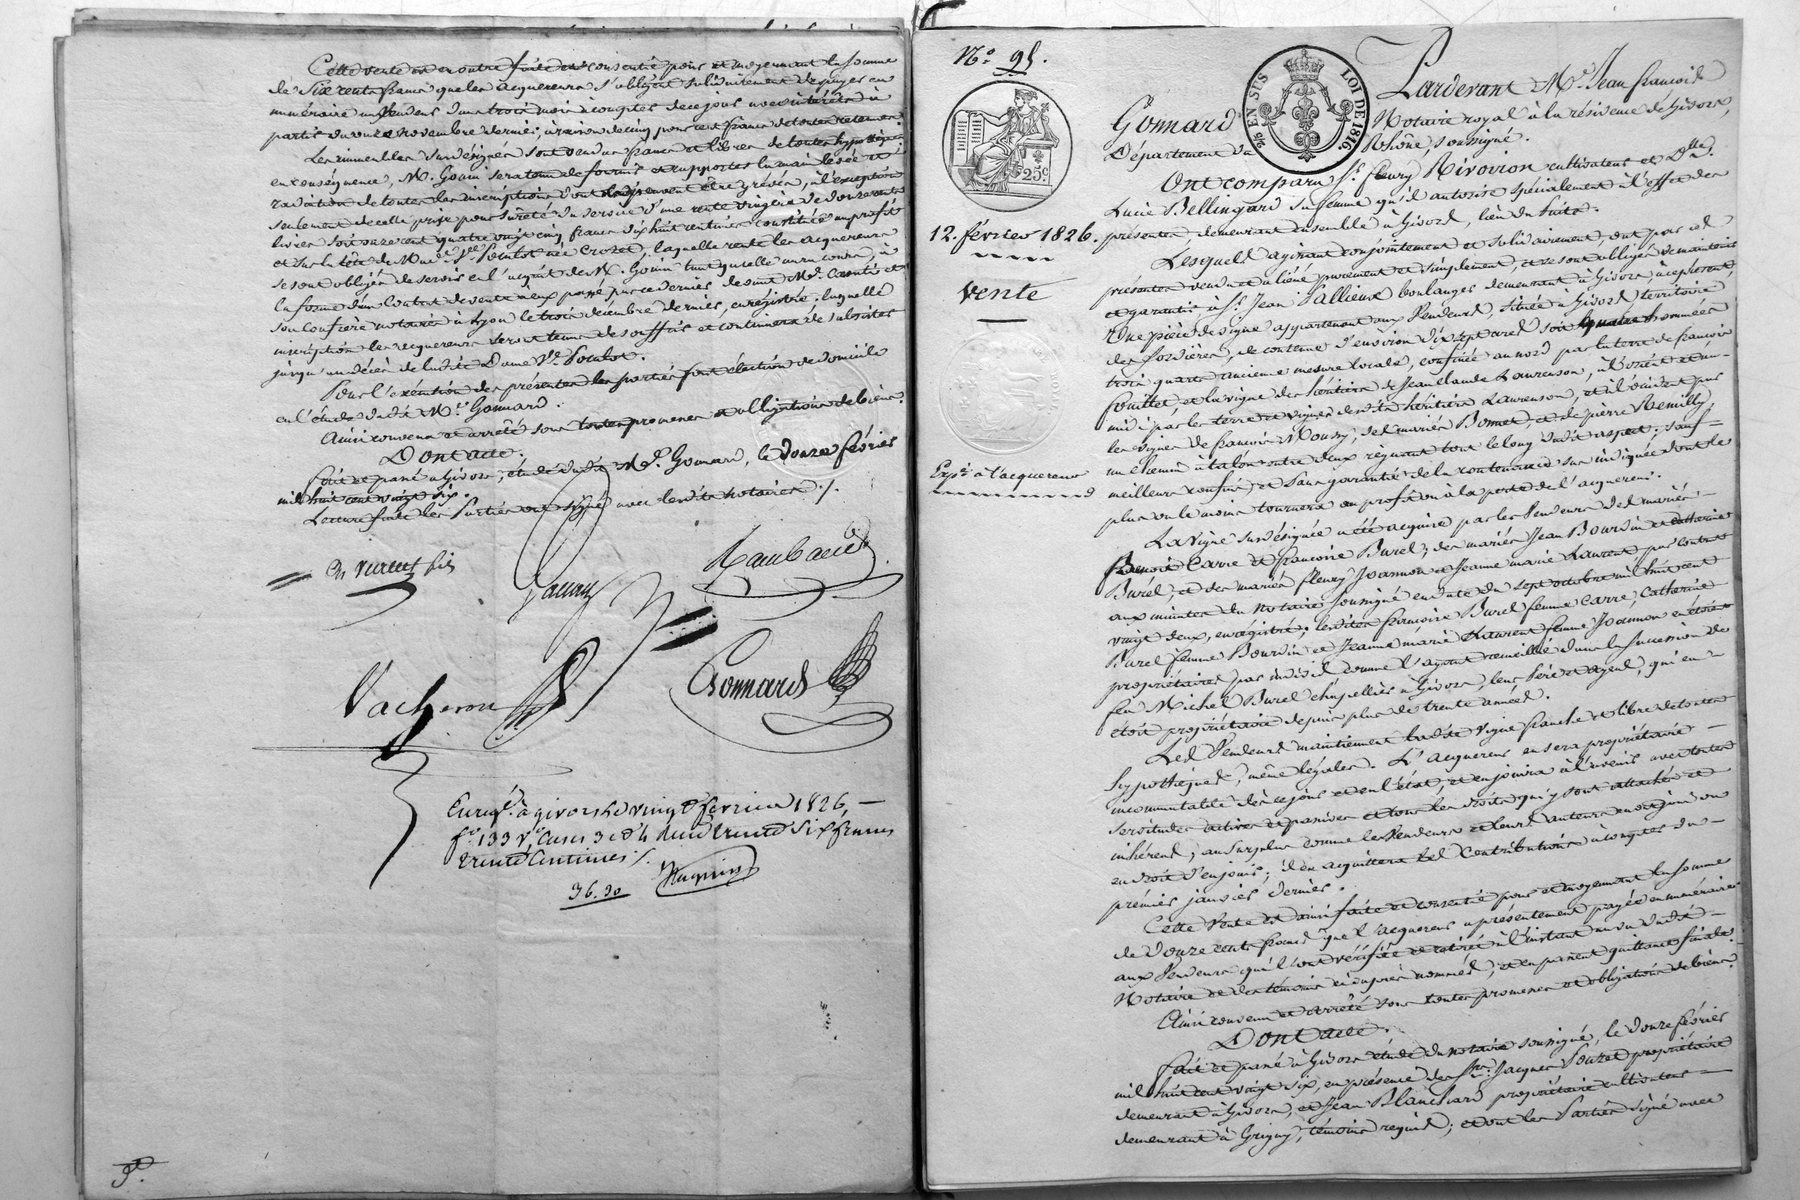 Cette vente est en outre faite et consentie pour et moyennant la somme
de Six cents francs que les acquereurs s'obligent solidairement de payer en
numéraire au Vendeur dans trois mois à compter de ce jour avec intérêts à
partir du onze novembre dernier, à raison de cinq pour cent francs de toutes retenues.
Les immeubles susdésignés sont vendus francs et libres de toutes hypothèques
en conséquence, M. Gouin sera tenu de fournir et rapporter la main levée et
radiation de toutes les inscriptions dont ils peuvent être grévés, à l'exception
seulement de celle prise pour sûreté du service d'une rente viagère de douze cents
livres soit onze cent quatre vingt cinq francs dix huit centimes constituée au profit
et sur la tête de Made. Ve. née Crozet, laquelle rente les acquereurs
se sont obligés de servir en l'acquit de M. Gouin tant qu'elle aura cours, à
la forme d'un Contrat de vente à eux passé par ce dernier devant Me. et
son confrère notaires à Lyon le trois décembre dernier, enregistré; laquelle
inscription les acquereurs seront tenus de souffrir et continuera de subsister
jusqu'au décès de ladite Dame Ve.
Pour l'exécution des présentes les parties font élection de domicile
en l'étude dudit Me. Gonnard.
Ainsi convenu et arrêté sous toutes promesses et obligations de biens.
Dont acte.
fait et passé à Givors, étude dudit Me. Gonnard, le douze février
mil huit cent vingt six.
Lecture faite les Parties ont signé avec lesdits notaires ./.
fils
Raubaud
Vacheron
Gonnard
Enregé. à givors le vingt février 1826,
fo. 133 Vo. Cases 3 et 4 Reçu trente Six francs
trente Centimes ./.
36.30
No. 95.
25 c
26 EN SUS
LOI DE 1816
12. février 1826.
Vente
Expé. à l'acquereur
Pardevant Me. Jean françois
Gonnard Notaire royal à la résidence de Givors,
Département du Rhône, soussigné.
Ont comparu Sr. fleury Rivoiron cultivateur et Dlle.
Lucie Bellingard sa femme qu'il autorise spécialement à l'effet des
présentes demeurant ensemble à Givors, lieu du
Lesquels agissant conjointement et solidairement, ont par ces
présentes vendu et aliéné purement et simplement, et se sont obligés de maintenir
et garantir à Sr. Jean Pallieux boulanger demeurant à Givors, acceptant,
Une pièce de vigne appartenant aux Vendeurs, située à Givors territoire
des, de contenue d'environ dix sept ares soit quatre hommées
trois quarts ancienne mesure locale, confinée au nord par la terre de françois
fouillet, et la vigne des héritiers de Jean Claude Laurenson, à l'orient et au
midi par les terre et vigne desdits héritiers Laurenson, et à l'occident par
les vignes de françois Mouny, des mariés Bonnet, et de pierre Remilly,
un chemin à talon entre deux regnant tout le long dudit aspect; sauf
meilleurs confins, et sans garantie de la contenance sus indiquée dont le
plus ou le moins tournera au profit ou à la perte de l'acquereur.
La vigne susdésignée a été acquise par les Vendeurs des mariés
Benoit Carre et françoise Burel, des mariés Jean Bourdin et Catherine
Burel, et des mariés fleury Joannon et Jeanne marie Laurent par contrat
aux minutes du Notaire soussigné en date du sept octobre mil huit cent
vingt deux, enregistré; lesdites françoise Burel femme Carre, Catherine
Burel femme Bourdin et Jeanne marie Laurent femme Joannon en étoient
propriétaires par indivis comme l'ayant recueillie dans la succession de
feu Michel Burel chapellier à Givors, leur Père et ayeul, qui en
étoit propriétaire depuis plus de trente années.
Les Vendeurs maintiennent ladite Vigne franche et libre de toutes
hypothèques, même légales. L'acquereur en sera propriétaire
incommutable dès ce jour et en l'état, et en jouira à l'avenir avec toutes
servitudes actives et passives et tous les droits qui y sont attachés et
inhérens, au surplus comme les Vendeurs et leurs auteurs en ont joui ou
eu droit d'en jouir; il en acquittera les Contributions à compter du
premier janvier dernier.
Cette Vente est ainsi faite et consentie pour et moyennant la somme
de Douze cents francs que l'acquereur a présentement payée en numéraire
aux Vendeurs qui l'ont vérifiée et retirée à l'instant au vu dudit
Notaire et des témoins ci-après nommés; et en passent quittance finale.
Ainsi convenu et arrêté sous toutes promesses et obligations de biens.
Dont acte.
fait et passé à Givors étude du notaire soussigné, le douze février
mil huit cent vingt six, en présence des Srs. Jacques Pouzet propriétaire
demeurant à Givors, et Jean Blanchard propriétaire cultivateur
demeurant à Grigny, témoins requis; et ont les Parties signé avec